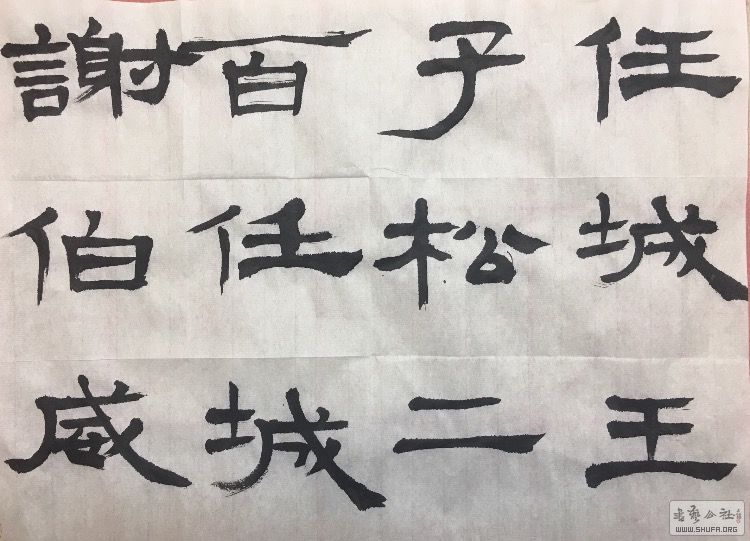 任城王
子松二
百任城
謝伯威
書藝公社
WWW.SHUFA.ORG